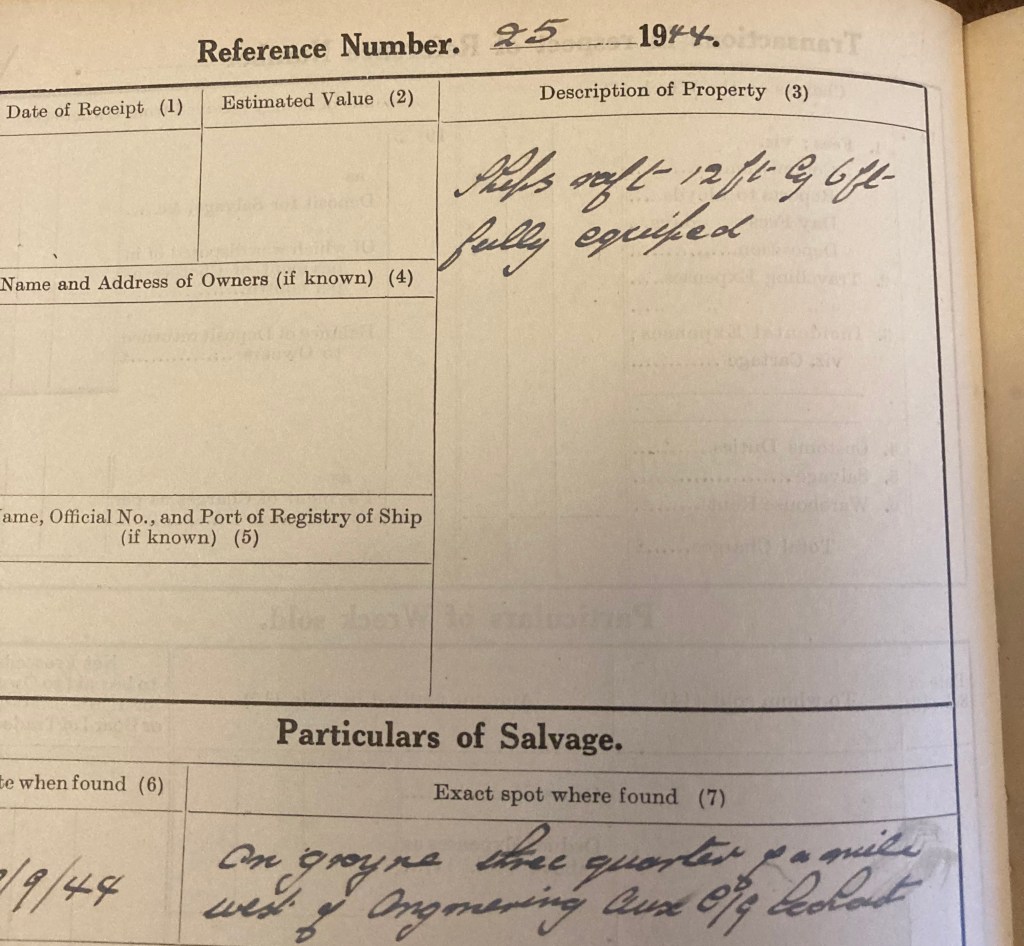 Reference Number. 25 1944.
Date of Receipt (1) Estimated Value (2) Description of Property (3)
Ships raft 12 ft By 6 ft
fully equiped
Name and Address of Owners (if known) (4)
ame, Official No., and Port of Registry of Ship
(if known) (5)
Particulars of Salvage.
te when found (6) Exact spot where found (7)
/9/44
On groyne three quarter of a mile
west of Angmering Aux C/G